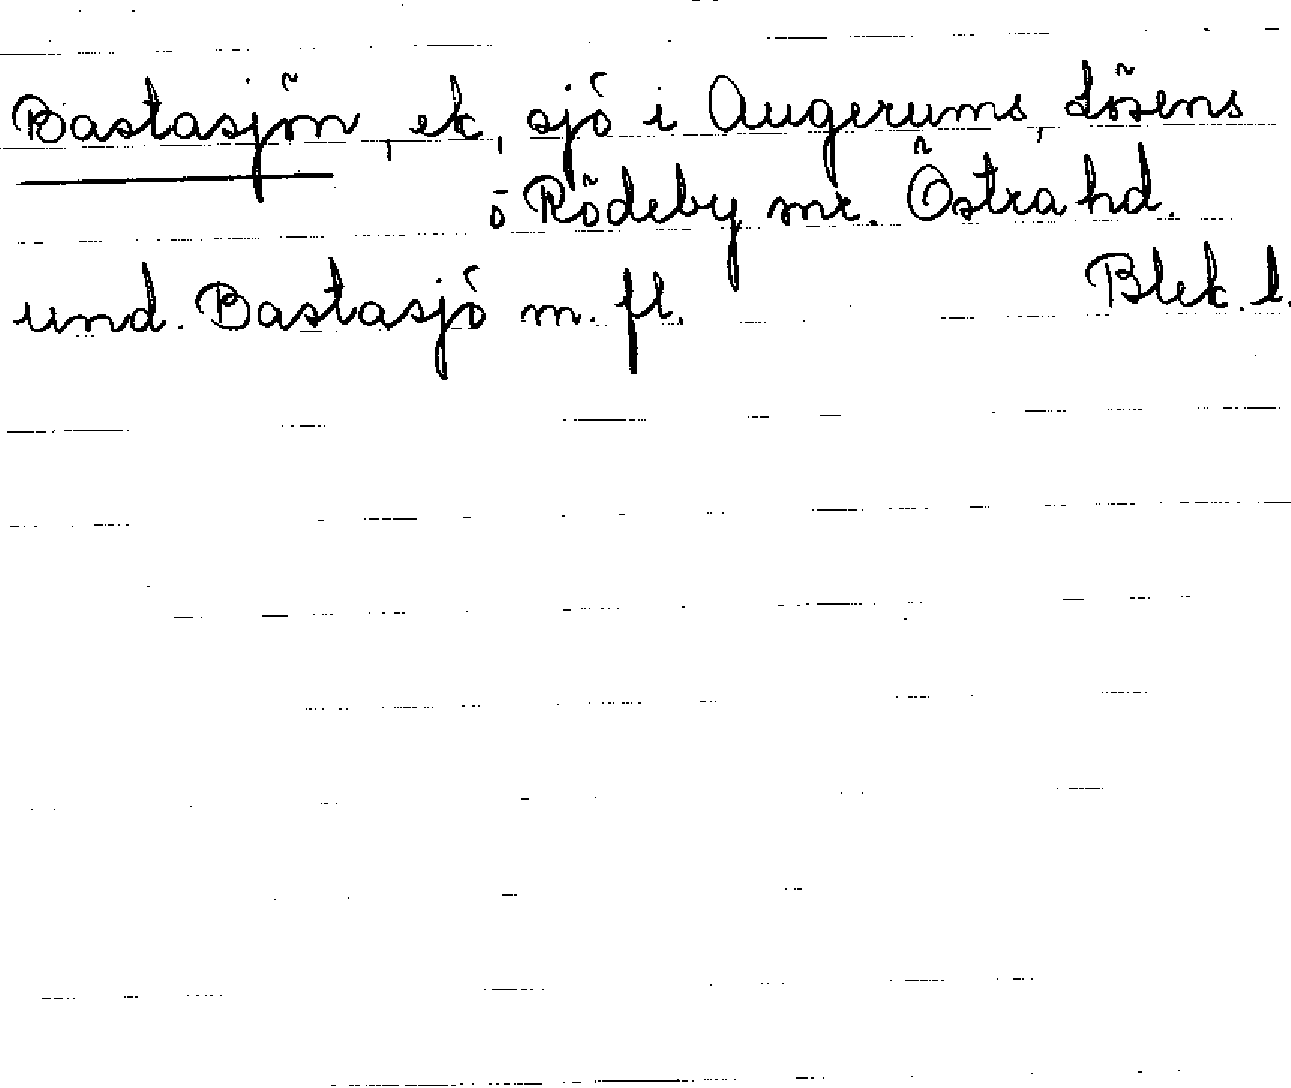 Bastasjön, ek, sjö i Augerums, Lösens
o Rödeby snr. Östra hd.
und. Bastasjö m. fl. Blek. l.